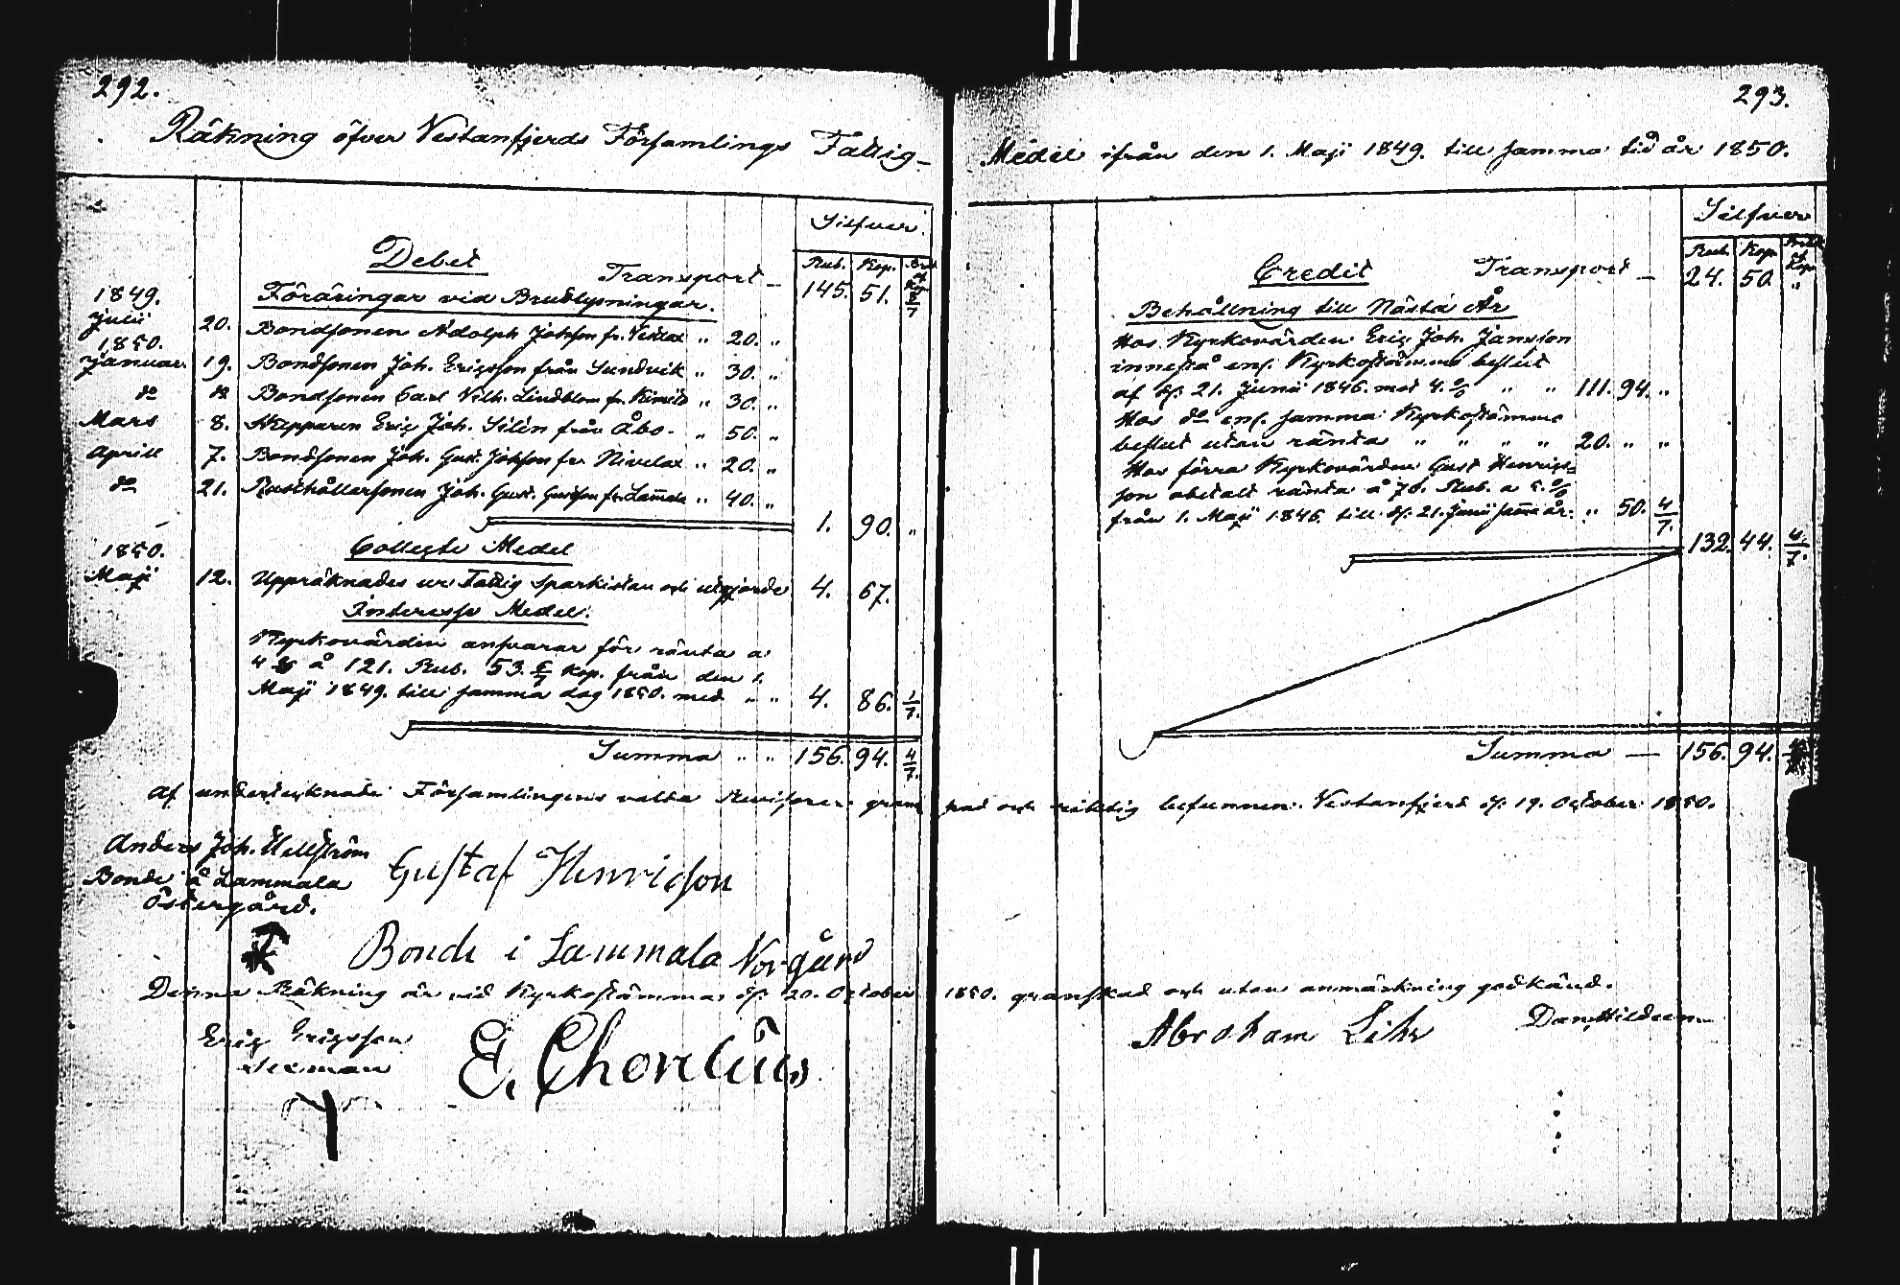 292.
Räkning öfver Vestanfjerds Församlings Fattig-
Silfver.
Debet
Rub. Kop. Bråk af Kop.
Transport — 145. 51. 3/7
1849. Föräringar vid Brudlysningar.
Julii 20. Bondsonen Adolph Johsson fr. " 20. "
1850.
Januari 19. Bondsonen Joh. Ericsson från Sundvik " 30. "
do do Bondsonen Carl Vilh. Lindblom fr. Kimito " 30. "
Mars 8. Skepparen Eric Joh. Silén från Åbo. " 50. "
Aprill 7. Bondsonen Joh. Gust. Johsson fr. Nivelax " 20. "
do 21. Rusthållarsonen Joh. Gust. fr. Lammala " 40. "
1. 90. "
1850. Collecte Medel
Maji 12. Uppräknades ur Fattig Sparkistan och utgjorde 4. 67.
Interesse Medel.
Kyrkovärden ansvarar för ränta a
4 % å 121. Rub. 53. 5/7 Kop. från den 1.
Maji 1849. till samma dag 1850. med " " 4. 86. 1/7.
Summa " " 156. 94. 4/7.
293.
Medel ifrån den 1. Maji 1849. till samma tid år 1850.
Silfver
Rub. Kop. Bråk af Kop.
Credit Transport — 24. 50. "
Behållning till Nästa År
Hos Kyrkovärden Eric Joh. Jansson
innestå enl. Kyrkostämmo beslut
af d. 21. Junii 1846. med 4. % " " 111. 94. "
Hos do enl. samma Kyrkostämmo
beslut utan ränta " " " " 20. " "
Hos förra Kyrkovärden Gust Henrics-
son obetalt ränta å 78. Rub. a 5. %
från 1. Maji 1846. till d. 21. Junii samma år. " 50. 4/7.
132. 44. 4/7.
Summa — 156. 94. 4/7
Af undertecknade Församlingens valta Revisorer granskad och riktig befunnen. Vestanfjerd d. 19. October 1850.
Anders Joh. Hellström
Bonde å Lammala
Östergård.
Gustaf Henricson
Bonde i Lammala Norgård
Denna Räkning är vid Kyrkostämma d. 20. October 1850. granskad och utan anmärkning godkänd.
Eric Ericsson
Sexman
E. Chorelius
Abraham
Dan. Hildeen